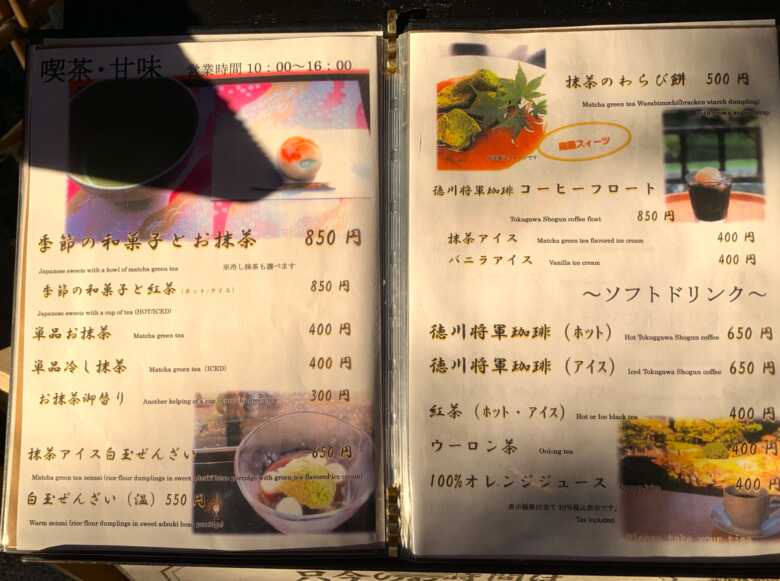 喫茶・甘味 営業時間 10:00～16:00
季節の和菓子とお抹茶 850 円
Japanese sweets with a bowl of matcha green tea ※冷し抹茶も選べます
季節の和菓子と紅茶 (ホット/アイス) 850 円
Japanese sweets with a cup of tea (HOT/ICED)
単品お抹茶 Matcha green tea 400 円
単品冷し抹茶 Matcha green tea (ICED) 400 円
お抹茶御替り Another helping of a 300 円
抹茶アイス白玉ぜんざい 650 円
Matcha green tea zensai (rice flour dumplings in sweet adzuki bean porridge with green tea flavored ice cream)
白玉ぜんざい (温) 550 円
Warm zensai (rice flour dumplings in sweet adzuki bean porridge)
抹茶のわらび餅 500 円
Matcha green tea Warabimochi(bracken starch dumpling)
スイーツ
徳川将軍珈琲 コーヒーフロート
Tokugawa Shogun coffee float 850 円
抹茶アイス Matcha green tea flavored ice cream 400 円
バニラアイス Vanilla ice cream 400 円
～ソフトドリンク～
徳川将軍珈琲 (ホット) Hot Tokuggawa Shogun coffee 650 円
徳川将軍珈琲 (アイス) Iced Tokugawa Shogun coffee 650 円
紅茶 (ホット・アイス) Hot or Ice black tea 400 円
ウーロン茶 Oolong tea 400 円
100%オレンジジュース 400 円
表示価格は全て10%税込表示です。
Tax included
Please take your time